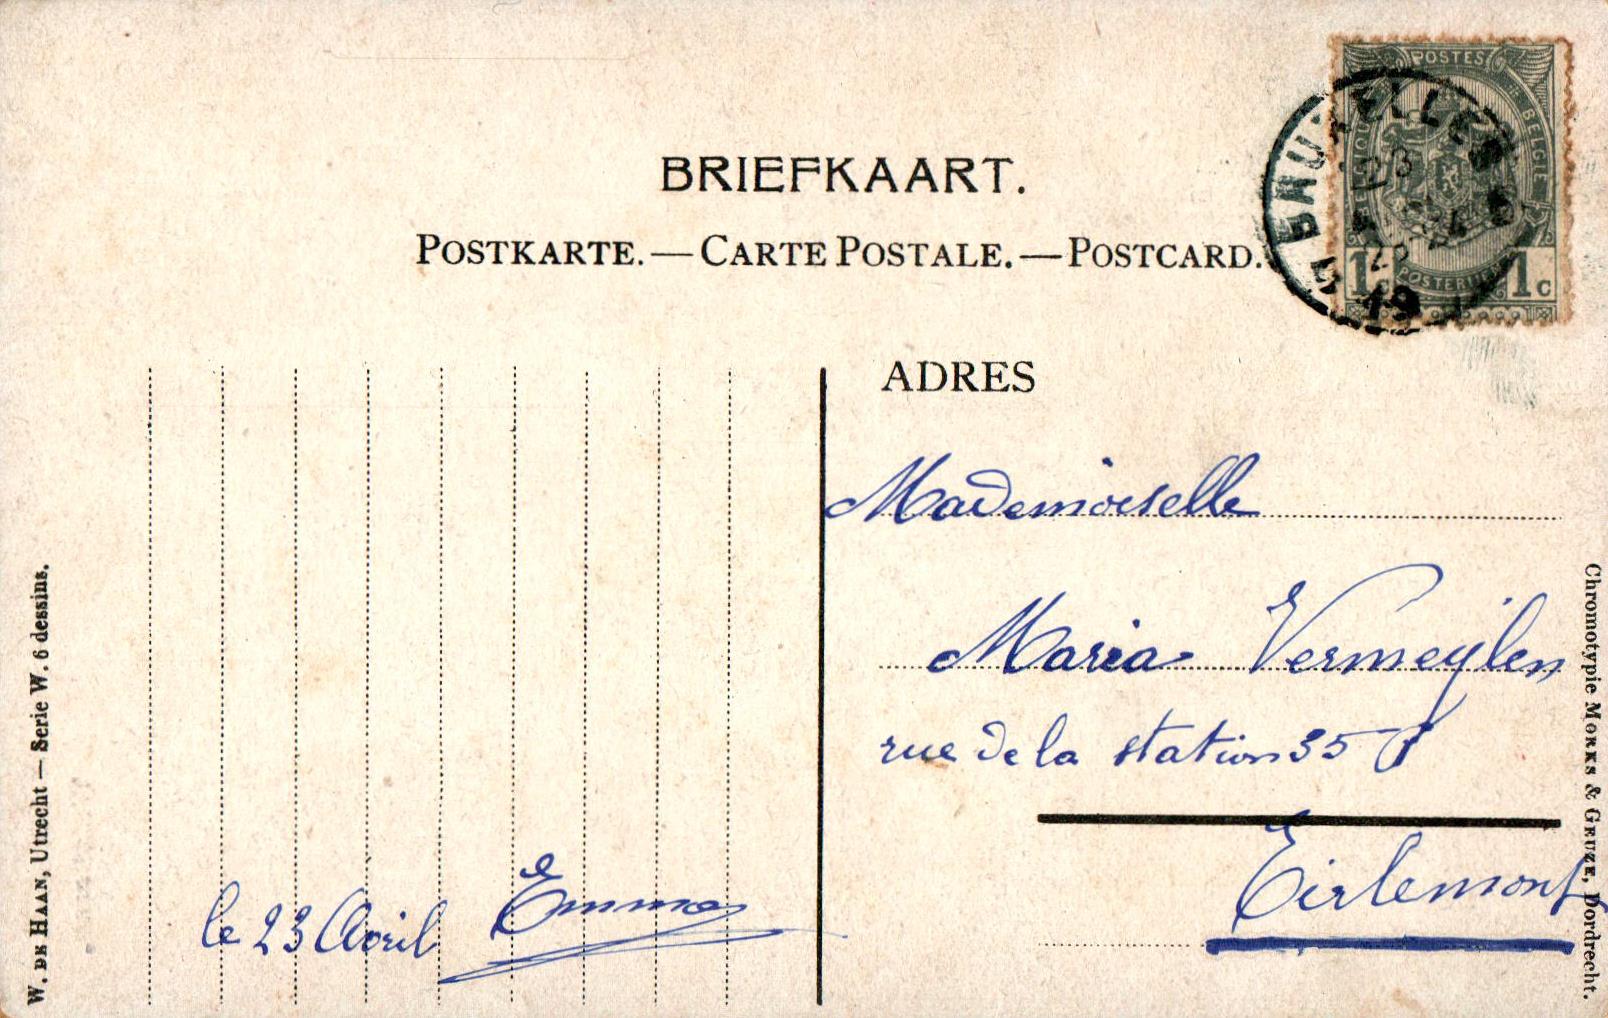 BRIEFKAART.
POSTKARTE. — CARTE POSTALE. — POSTCARD.
POSTES
BELGIQUE
BELGIË
POSTERIJEN
1c 1c
BRUXELLES 5
23
19
ADRES
Mademoiselle
Maria Vermeylen
rue de la station 35
Tirlemont
le 23 Avril Emma
W. DE HAAN, Utrecht — Serie W. 6 dessins.
Chromotypie MORKS & GEUZE, Dordrecht.